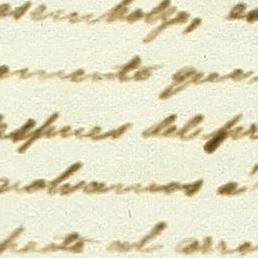 esembolzo,
amento que
despues del pr
volvamos a
ente al arro